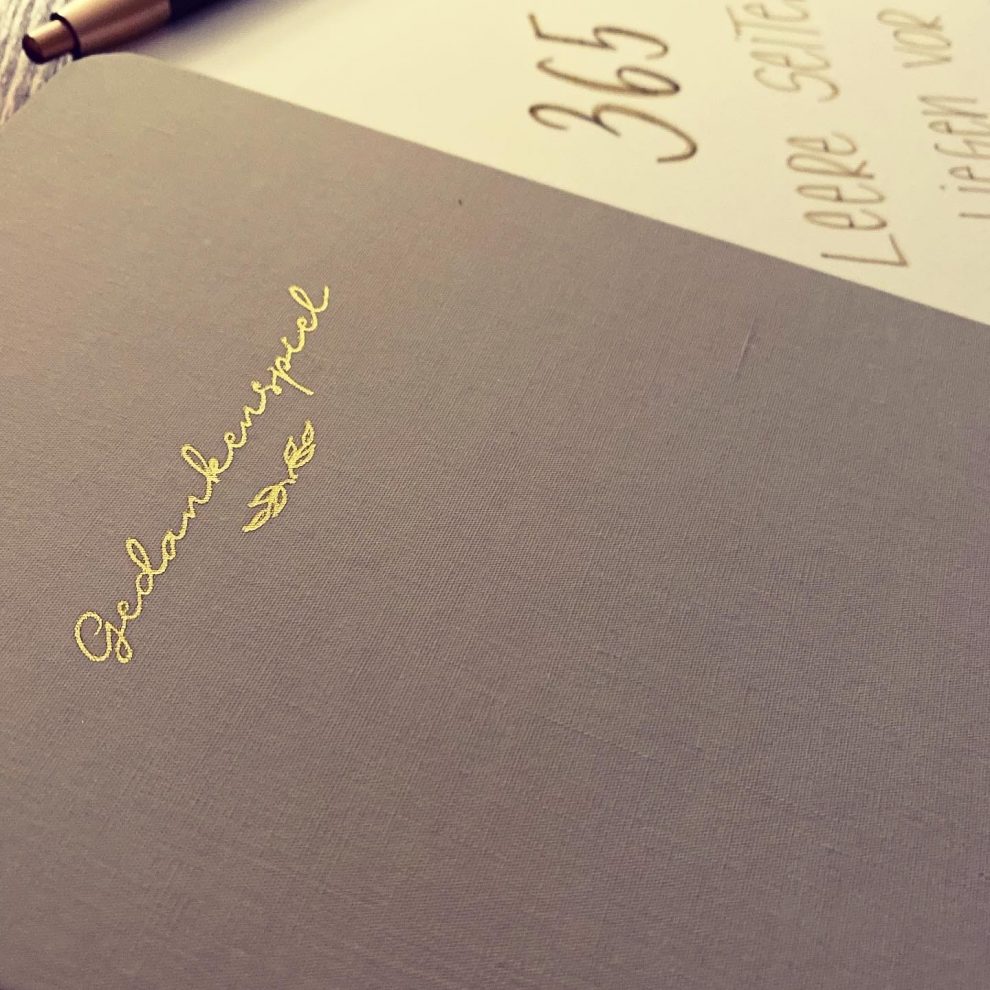 Gedankenspiel
365
LEERE SEITEN
LIEGEN VOR